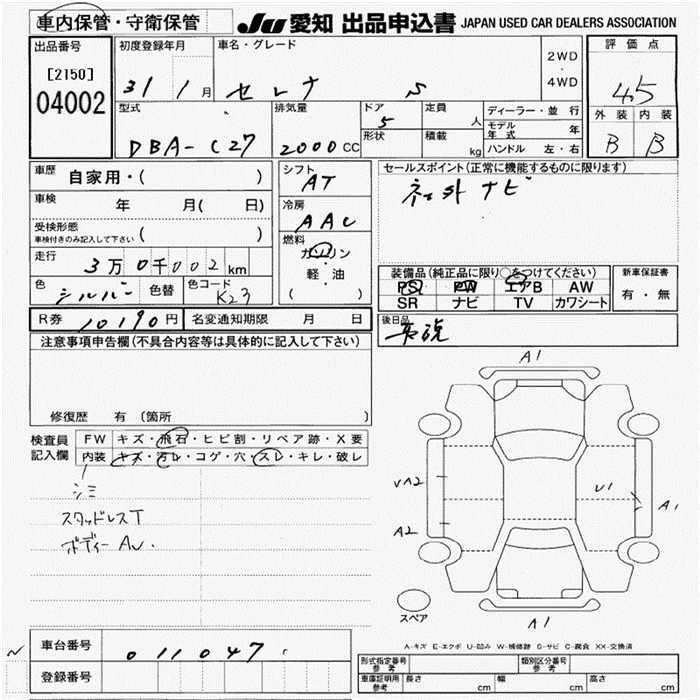 車内保管・守衛保管
JU 愛知 出品申込書 JAPAN USED CAR DEALERS ASSOCIATION
出品番号
[2150]
04002
初度登録年月
31 1 月
車名・グレード
セレナ S
2WD
・
4WD
評価点
4.5
外装 内装
B B
型式
DBA-C27
排気量
2000 CC
ドア
5
形状
定員
人
積載
kg
ディーラー・並行
モデル年式 年
ハンドル 左・右
車歴 自家用・( )
車検 年 月( 日)
受検形態
車検付きのみ記入して下さい ( )
走行 3万0千002km
色 シルバー 色替 色コード K23
シフト
AT
冷房
AAC
燃料
ガソリン
軽・油
( )
セールスポイント(正常に機能するものに限ります)
ナビ
装備品(純正品に限り○をつけてください)
PS PW エアB AW
SR ナビ TV カワシート
新車保証書
有・無
R券 10190円 名変通知期限 月 日
後日品
注意事項申告欄(不具合内容等は具体的に記入して下さい)
修復歴 有 (箇所 )
検査員
記入欄
FW キズ・飛石・ヒビ割・リペア跡・X要
内装 キズ・汚レ・コゲ・穴・スレ・キレ・破レ
シミ
スタッドレスT
ボディー AU.
A1
UA2
A2
U1
A1
A1
スペア
A-キズ E-エクボ U-凹み W-補修跡 S-サビ C-腐食 XX-交換済
車台番号 011047
登録番号
型式指定番号
参考
類別区分番号
参考
車庫証明用
参考
長さ cm 幅 cm 高さ cm